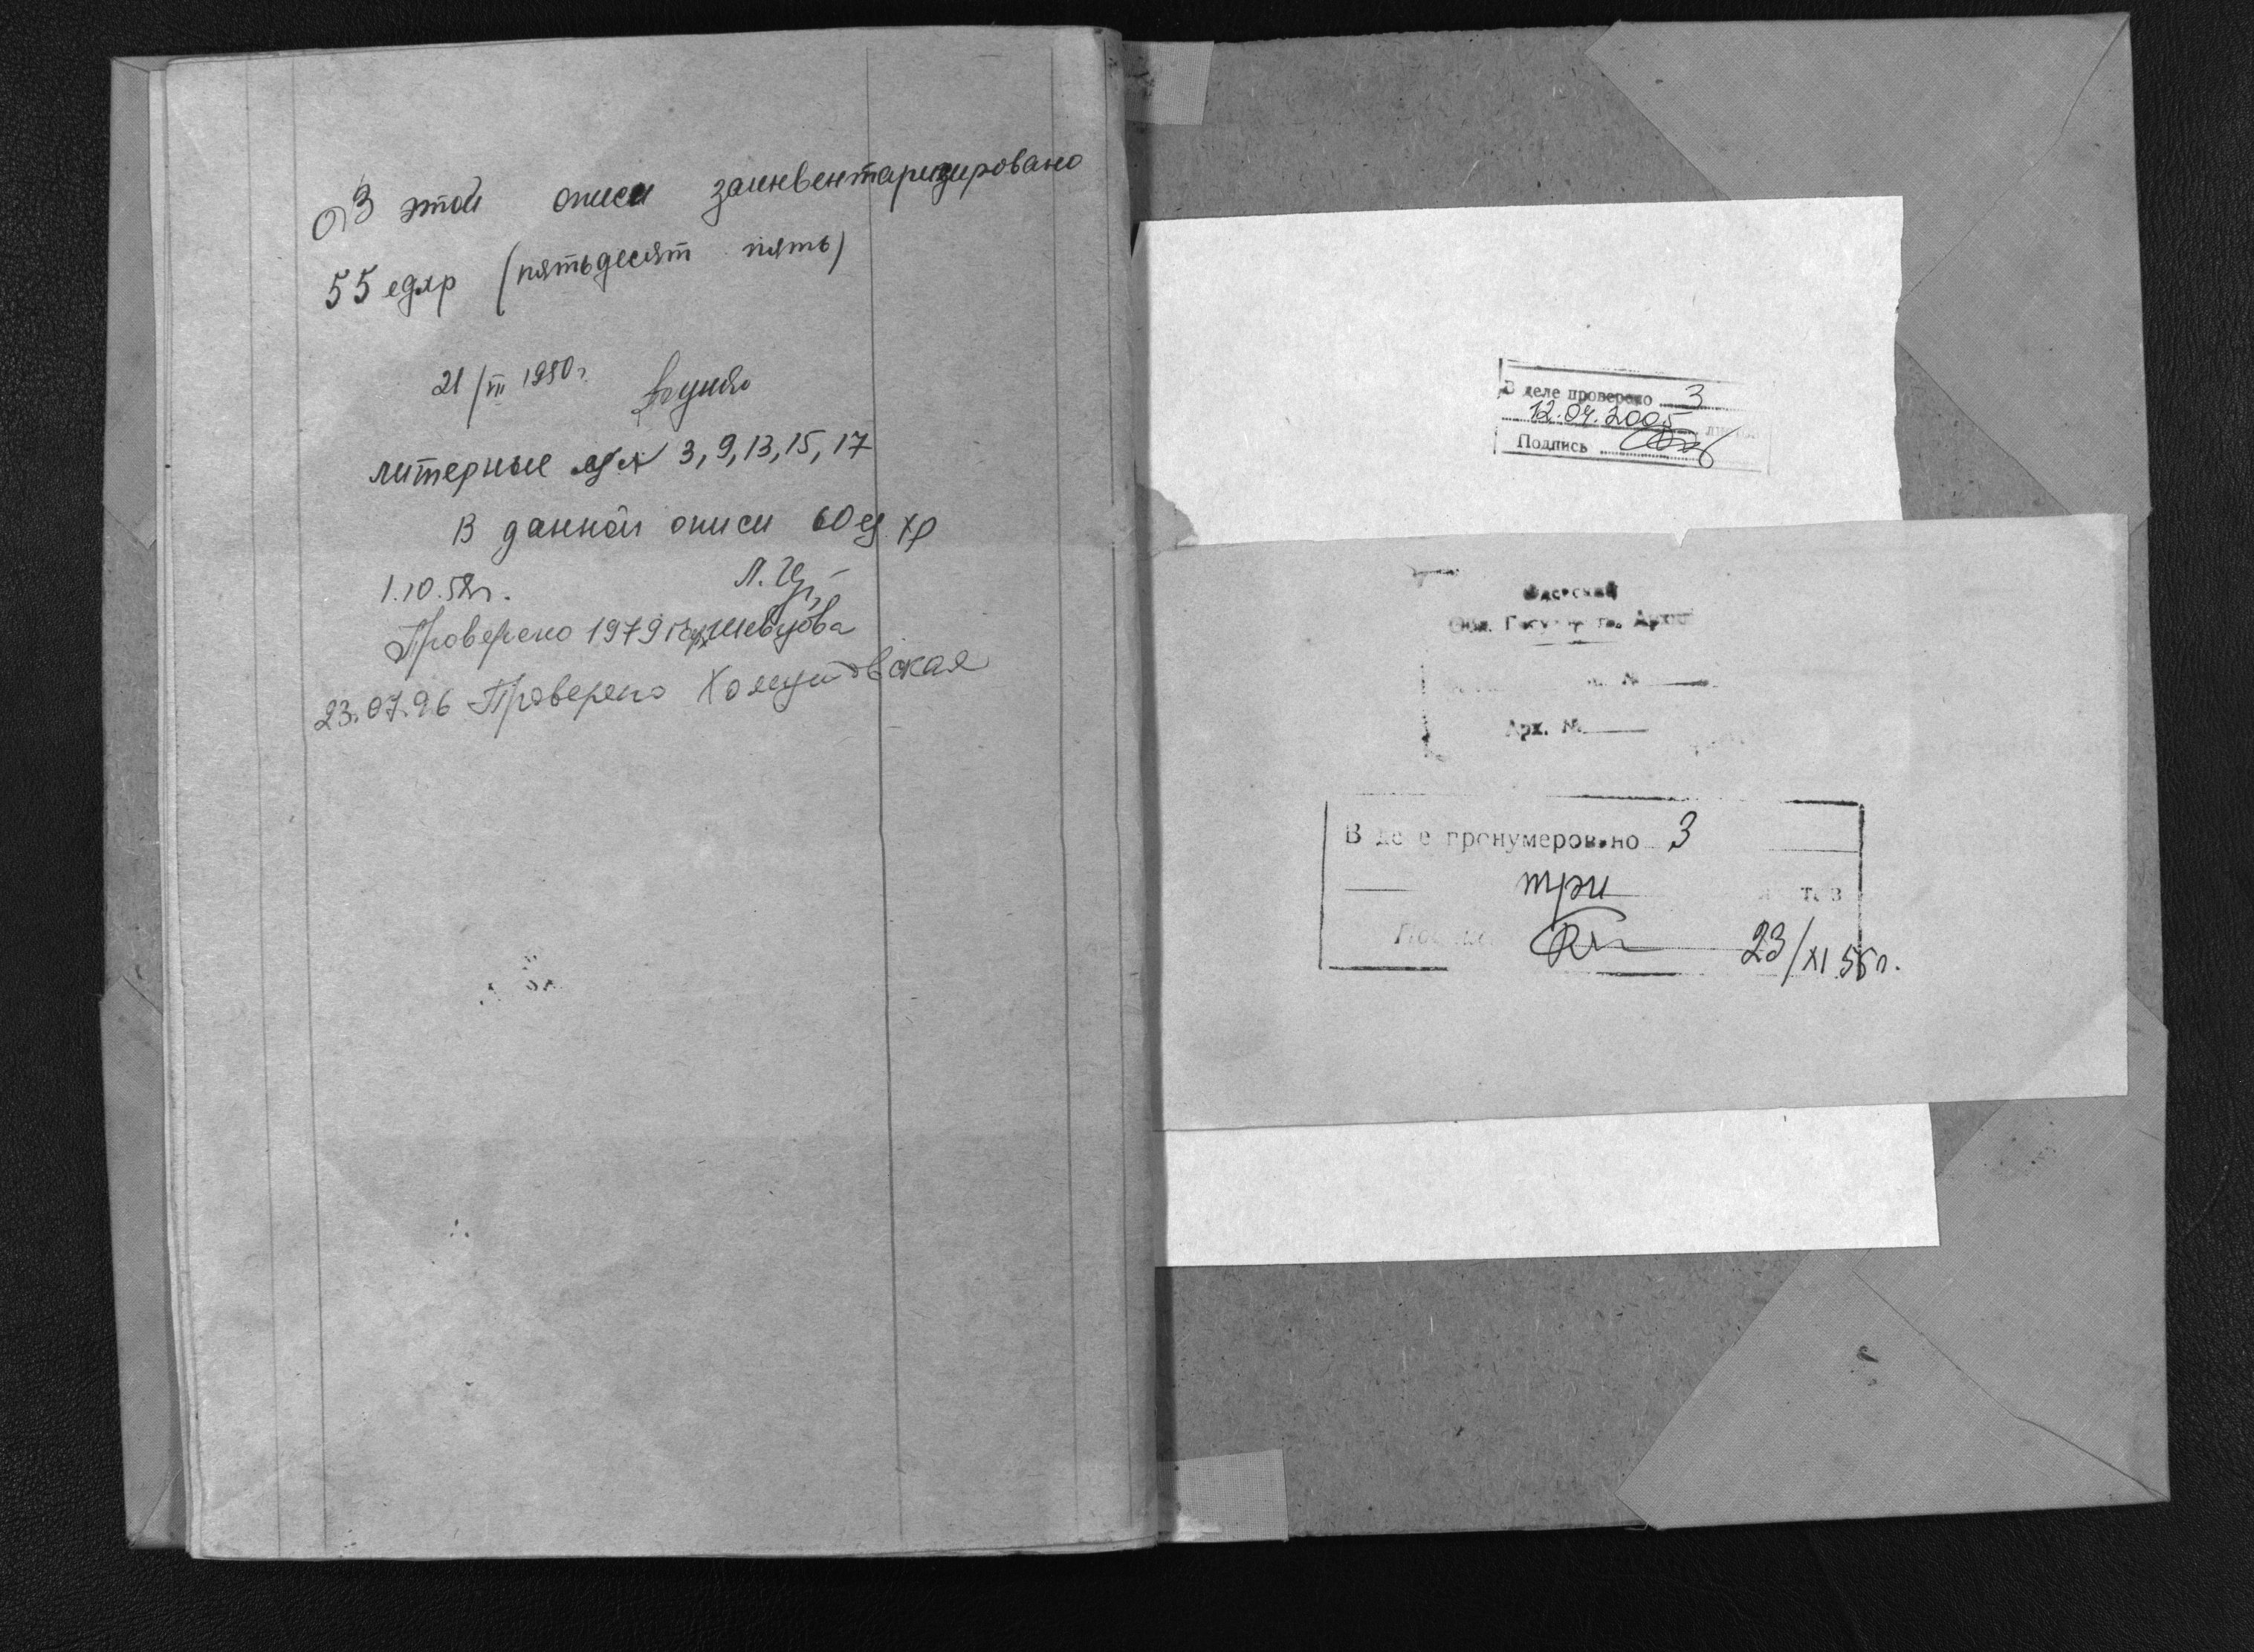 В этой описи заинвентаризировано
55 едхр (пятьдесят пять)
21/VII 1950г.
литерные №№ 3, 9, 13, 15, 17
В данной описи 60 ед. хр
1.10.58г.
Проверено 1979г Шевцова
23.07.96 Проверено
В деле проверено 3
12.04.2005
Подпись
Арх. №
В деле пронумеровано 3
три
23/XI 56г.